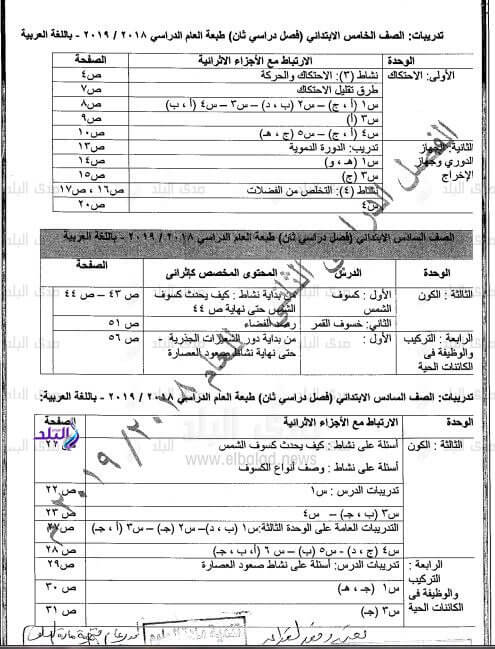 تدريبات: الصف الخامس الابتدائي (فصل دراسي ثان) طبعة العام الدراسي ٢٠١٨ / ٢٠١٩ - باللغة العربية
الوحدة الارتباط مع الأجزاء الاثرائية الصفحة
الأولى: الاحتكاك نشاط (٣): الاحتكاك والحركة ص٤
طرق تقليل الاحتكاك ص٧
س١ (أ ، ج) – س٢ (ب ، د) – س٣ – س٤ (أ ، ب) ص٨
س٣ (أ) ص٩
س٤ (أ ، ج) – س٥ (ج ، هـ) ص١٠
الثانية: الجهاز الدوري وجهاز الإخراج تدريب: الدورة الدموية ص١٣
س١ (هـ ، و) ص١٤
س٣ (ج) ص١٥
نشاط (٤): التخلص من الفضلات ص١٦ ، ص١٧
س٤ ص٢٠
الصف السادس الابتدائي (فصل دراسي ثان) طبعة العام الدراسي ٢٠١٨ / ٢٠١٩ - باللغة العربية
الوحدة الدرس المحتوى المخصص كإثرائى الصفحة
الثالثة : الكون الأول : كسوف الشمس من بداية نشاط : كيف يحدث كسوف الشمس حتى نهاية ص ٤٤ ص ٤٣ – ص ٤٤
الثاني: خسوف القمر رصد الفضاء ص ٥١
الرابعة : التركيب والوظيفة فى الكائنات الحية الأول : من بداية دور الشعيرات الجذرية - حتى نهاية نشاط صعود العصارة ص ٥٦
تدريبات: الصف السادس الابتدائي (فصل دراسي ثان) طبعة العام الدراسي ٢٠١٨ / ٢٠١٩ - باللغة العربية:
الوحدة الارتباط مع الأجزاء الاثرائية الصفحة
الثالثة : الكون أسئلة على نشاط : كيف يحدث كسوف الشمس ص ٢٢
أسئلة على نشاط : وصف أنواع الكسوف
تدريبات الدرس : س١ ص ٢٢
س٣ (ب ، جـ) – س٤ ص ٢٣
التدريبات العامة على الوحدة الثالثة: س١ (ب ، د) – س٢ (جـ) – س٣ (أ ، جـ) ص٢٧
س٤ (ج ، د) - س٥ (ب) – س٦ (أ، ب ، جـ) ص ٢٨
الرابعة : التركيب والوظيفة فى الكائنات الحية تدريبات الدرس: أسئلة على نشاط صعود العصارة ص٢٩
س١ (جـ ، هـ) ص ٣٠
س٣ (جـ) ص ٣١
الفصل الدراسي الثاني للعام ٢٠١٨ / ٢٠١٩ م
صدى البلد
www.elbalad.news